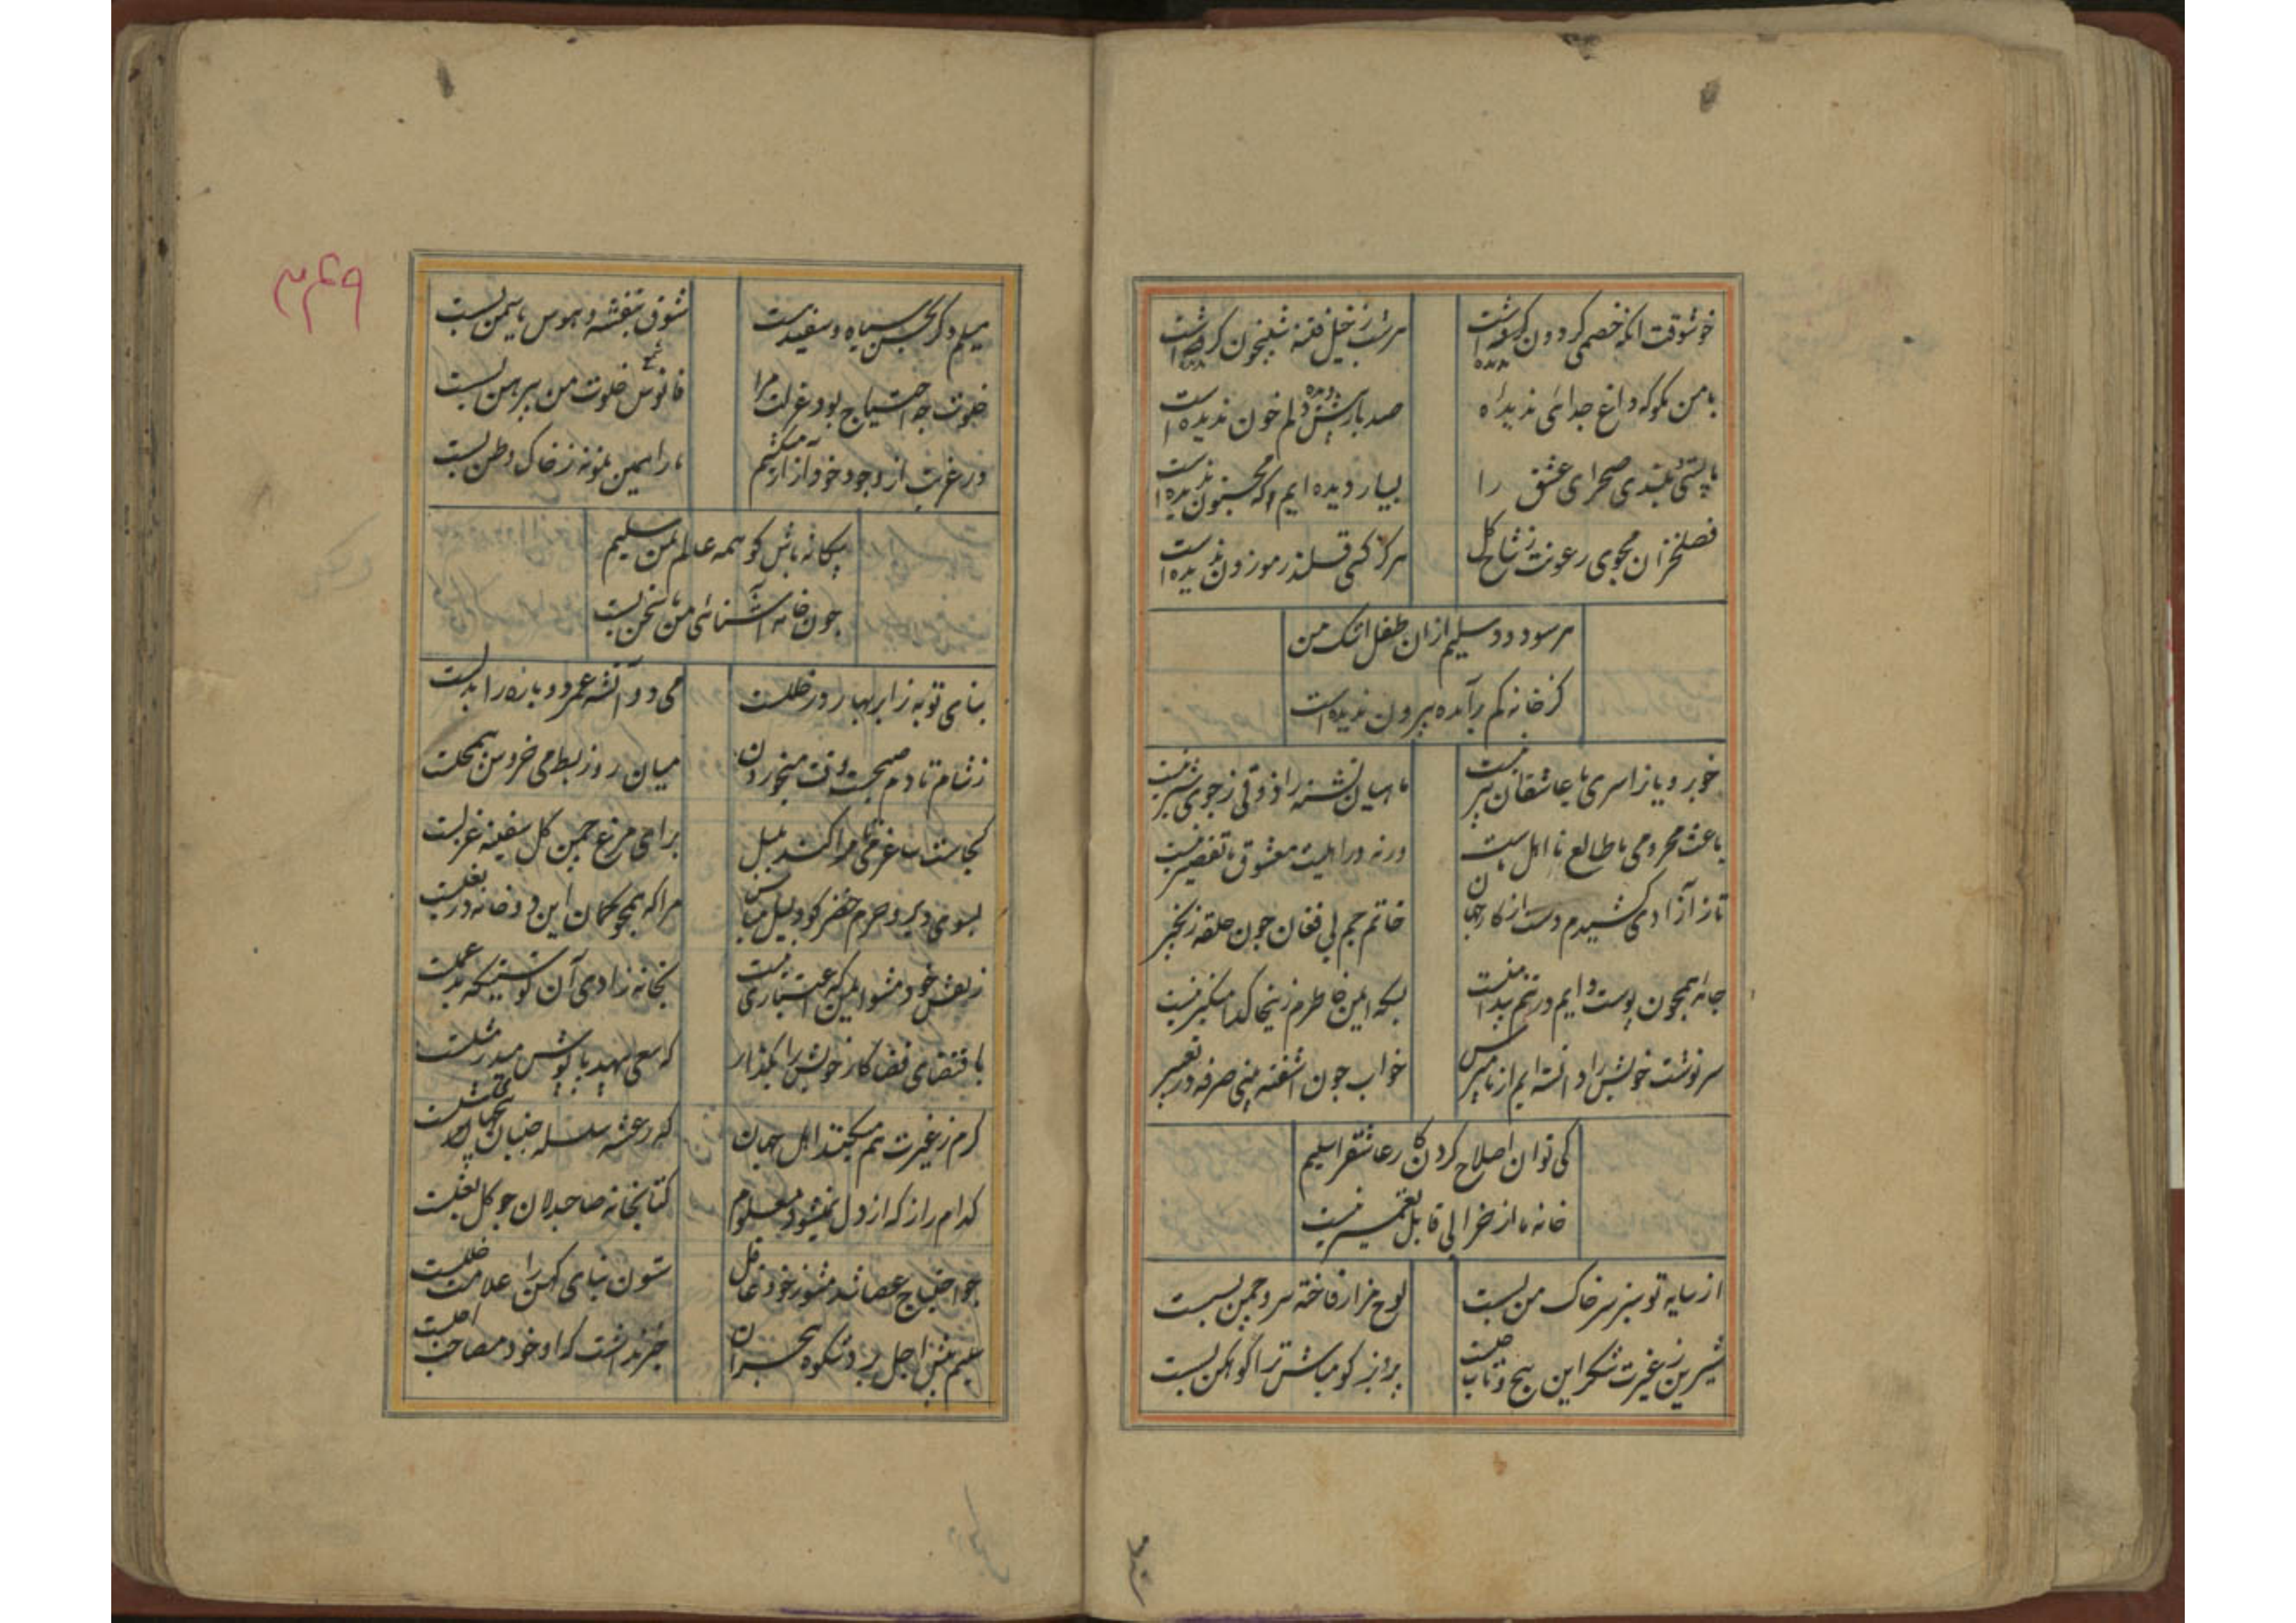 خوشوقت آنکه خصمی گردون ندیده است
هر شب ز خیل فتنه شبیخون ندیده است
با من مگو که داغ جدائی ندیدهٔ
صد بار بیش دیده دلم خون ندیده است
ما پستی و بلندی صحرای عشق را
بسیار دیده ایم که مجنون ندیده است
فصل خزان مجوی رعونت ز شاخ گل
هرگز کسی قلندر موزون ندیده است
هر سو دود سلیم ازان طفل اشک من
کز خانه کم برآمده بیرون ندیده است
خوبرویان را سری با عاشقان پیر نیست
ماهیان تشنه را ذوقی ز جوی شیر نیست
باعث محرومی ما طالع نااهل ماست
ورنه در اهلیت معشوق ما تقصیر نیست
تا ز آزادی کشیدم دست از کار جهان
خاتم جم بی فغان چون حلقه زنجیر نیست
جامه همچون پوست دایم در تنم پیداست
بسکه ایمن خاطرم زینجا که دامنگیر نیست
سرنوشت خویش را دانسته ایم از ما مپرس
خواب چون آشفته بینی صرفه در تعبیر
کی توان اصلاح کردن کار عاشق را سلیم
خانه ما از خرابی قابل تعمیر نیست
از سایه تو سبز سر خاک من بس است
لوح مزار فاخته سرو چمن بس است
شیرین ز غیرت شکر این پیچ و تاب چیست
پرویز گو مباش ترا کوهکن بس است
میلم دگر بحسن سیاه و سفید نیست
شوق بنفشه و هوس یاسمن بس است
خلوت چه احتیاج بود عزلت مرا
فانوس شمع خلوت من پیرهن بس است
در غربت از وجود خود آزار میکشم
ما را همین نمونه ز خاک وطن بس است
بیگانه باش گو همه عالم بمن سلیم
چون خامه آشنائی من با سخن بس است
بنای توبه ز ابر بهار در خلل است
می دو آتشه عمر دوباره را بدل است
ز شام تا دم صبحست وقت می خوردن
میان روز بط می خروس بی محل است
کجاست ساغر می تا مرا کند بلبل
برای مرغ چمن گل سفینه غزل است
بسوی دیر و حرم خضر گو دلیل مباش
مرا که همچو کمان این دو خانه در بغل است
ز نفس خود مشو ایمن که اعتباری نیست
بخانه زادی آن کو سنیکه بد عمل است
باقتضای قضا کار خویش را بگذار
که سعی بیهده پاپوش میدرد مثل است
کرم ز غیرت هم میکنند اهل جهان
که رعشه سلسله جنبان پنجهای شل است
کدام راز که از دل نمیشود معلوم
کتابخانه صاحبدلان چو گل بغل است
چو احتیاج عصا شد مشو ز خود غافل
ستون بنای کهن را علامت خلل است
سلیم پیش اجل برد شکوه هجران
خبر نداشت که او خود مصاحب اجل است
۳۴۹